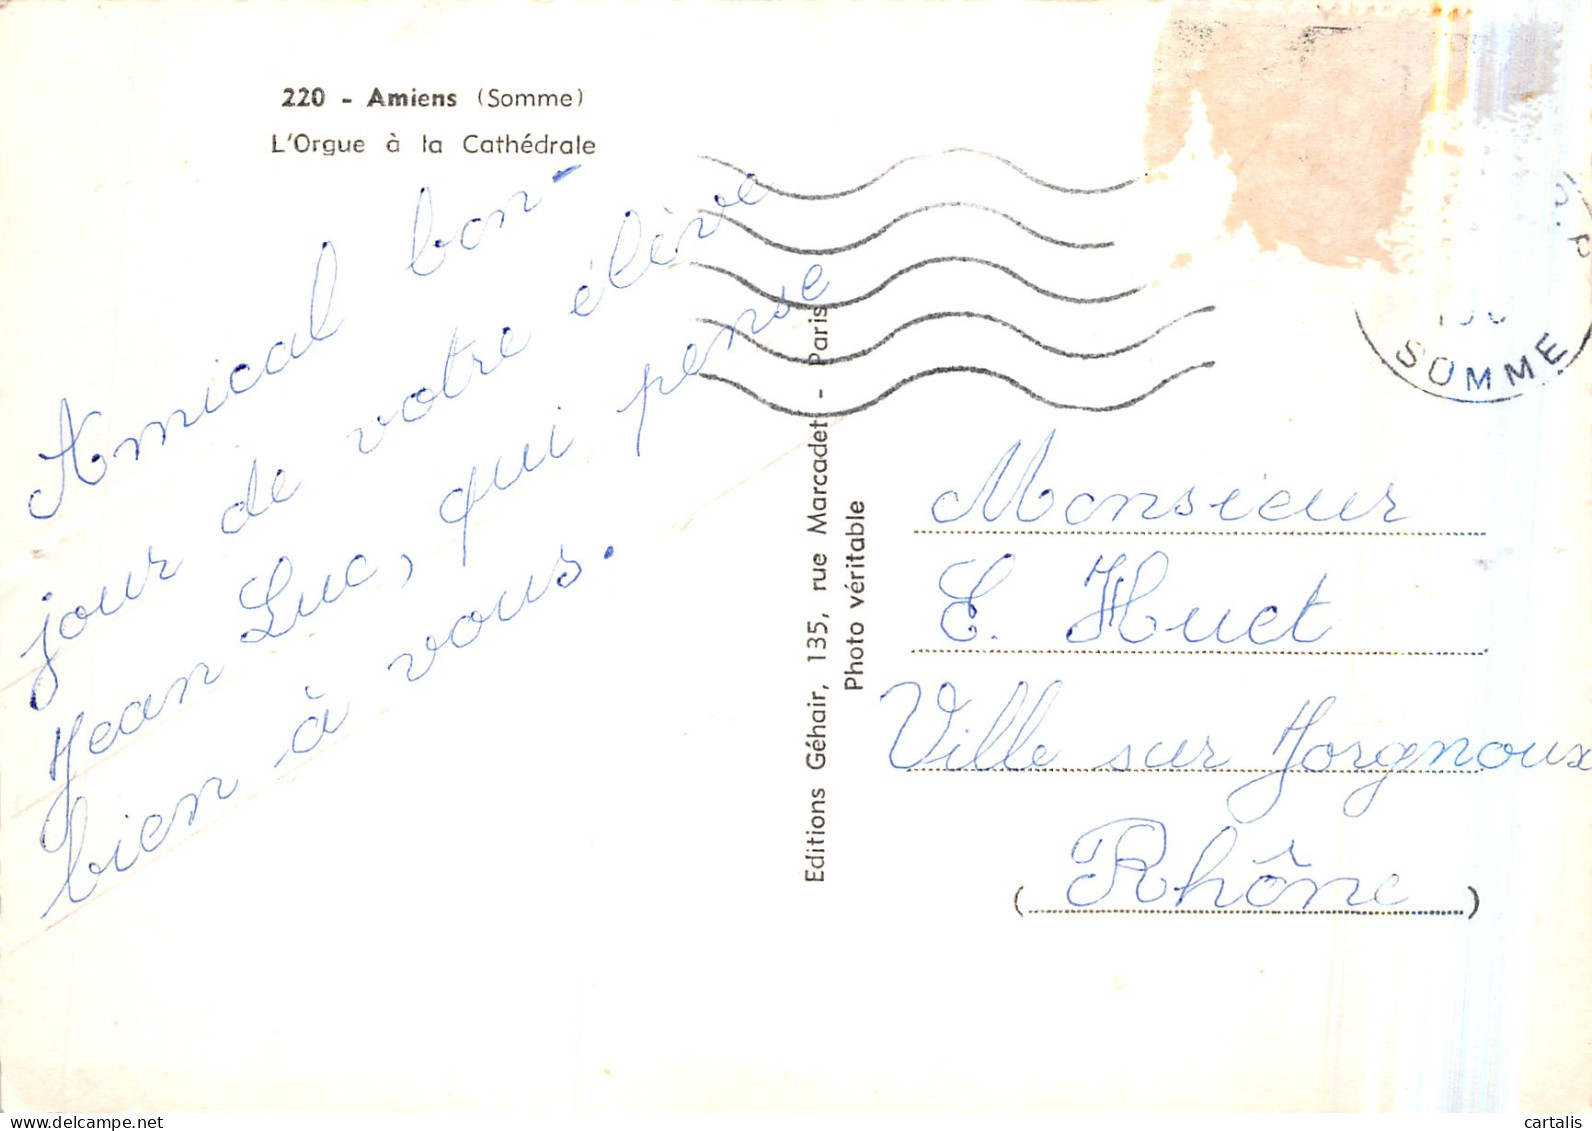 220 - Amiens (Somme)
L'Orgue à la Cathédrale
Amical bon-
jour de votre élève
Jean Luc, qui pense
bien à vous.
Editions Géhair, 135, rue Marcadet - Paris
Photo véritable
SOMME
Monsieur
E. Huet
Ville sur Jorgnoux
(Rhône)
www.delcampe.net
cartalis